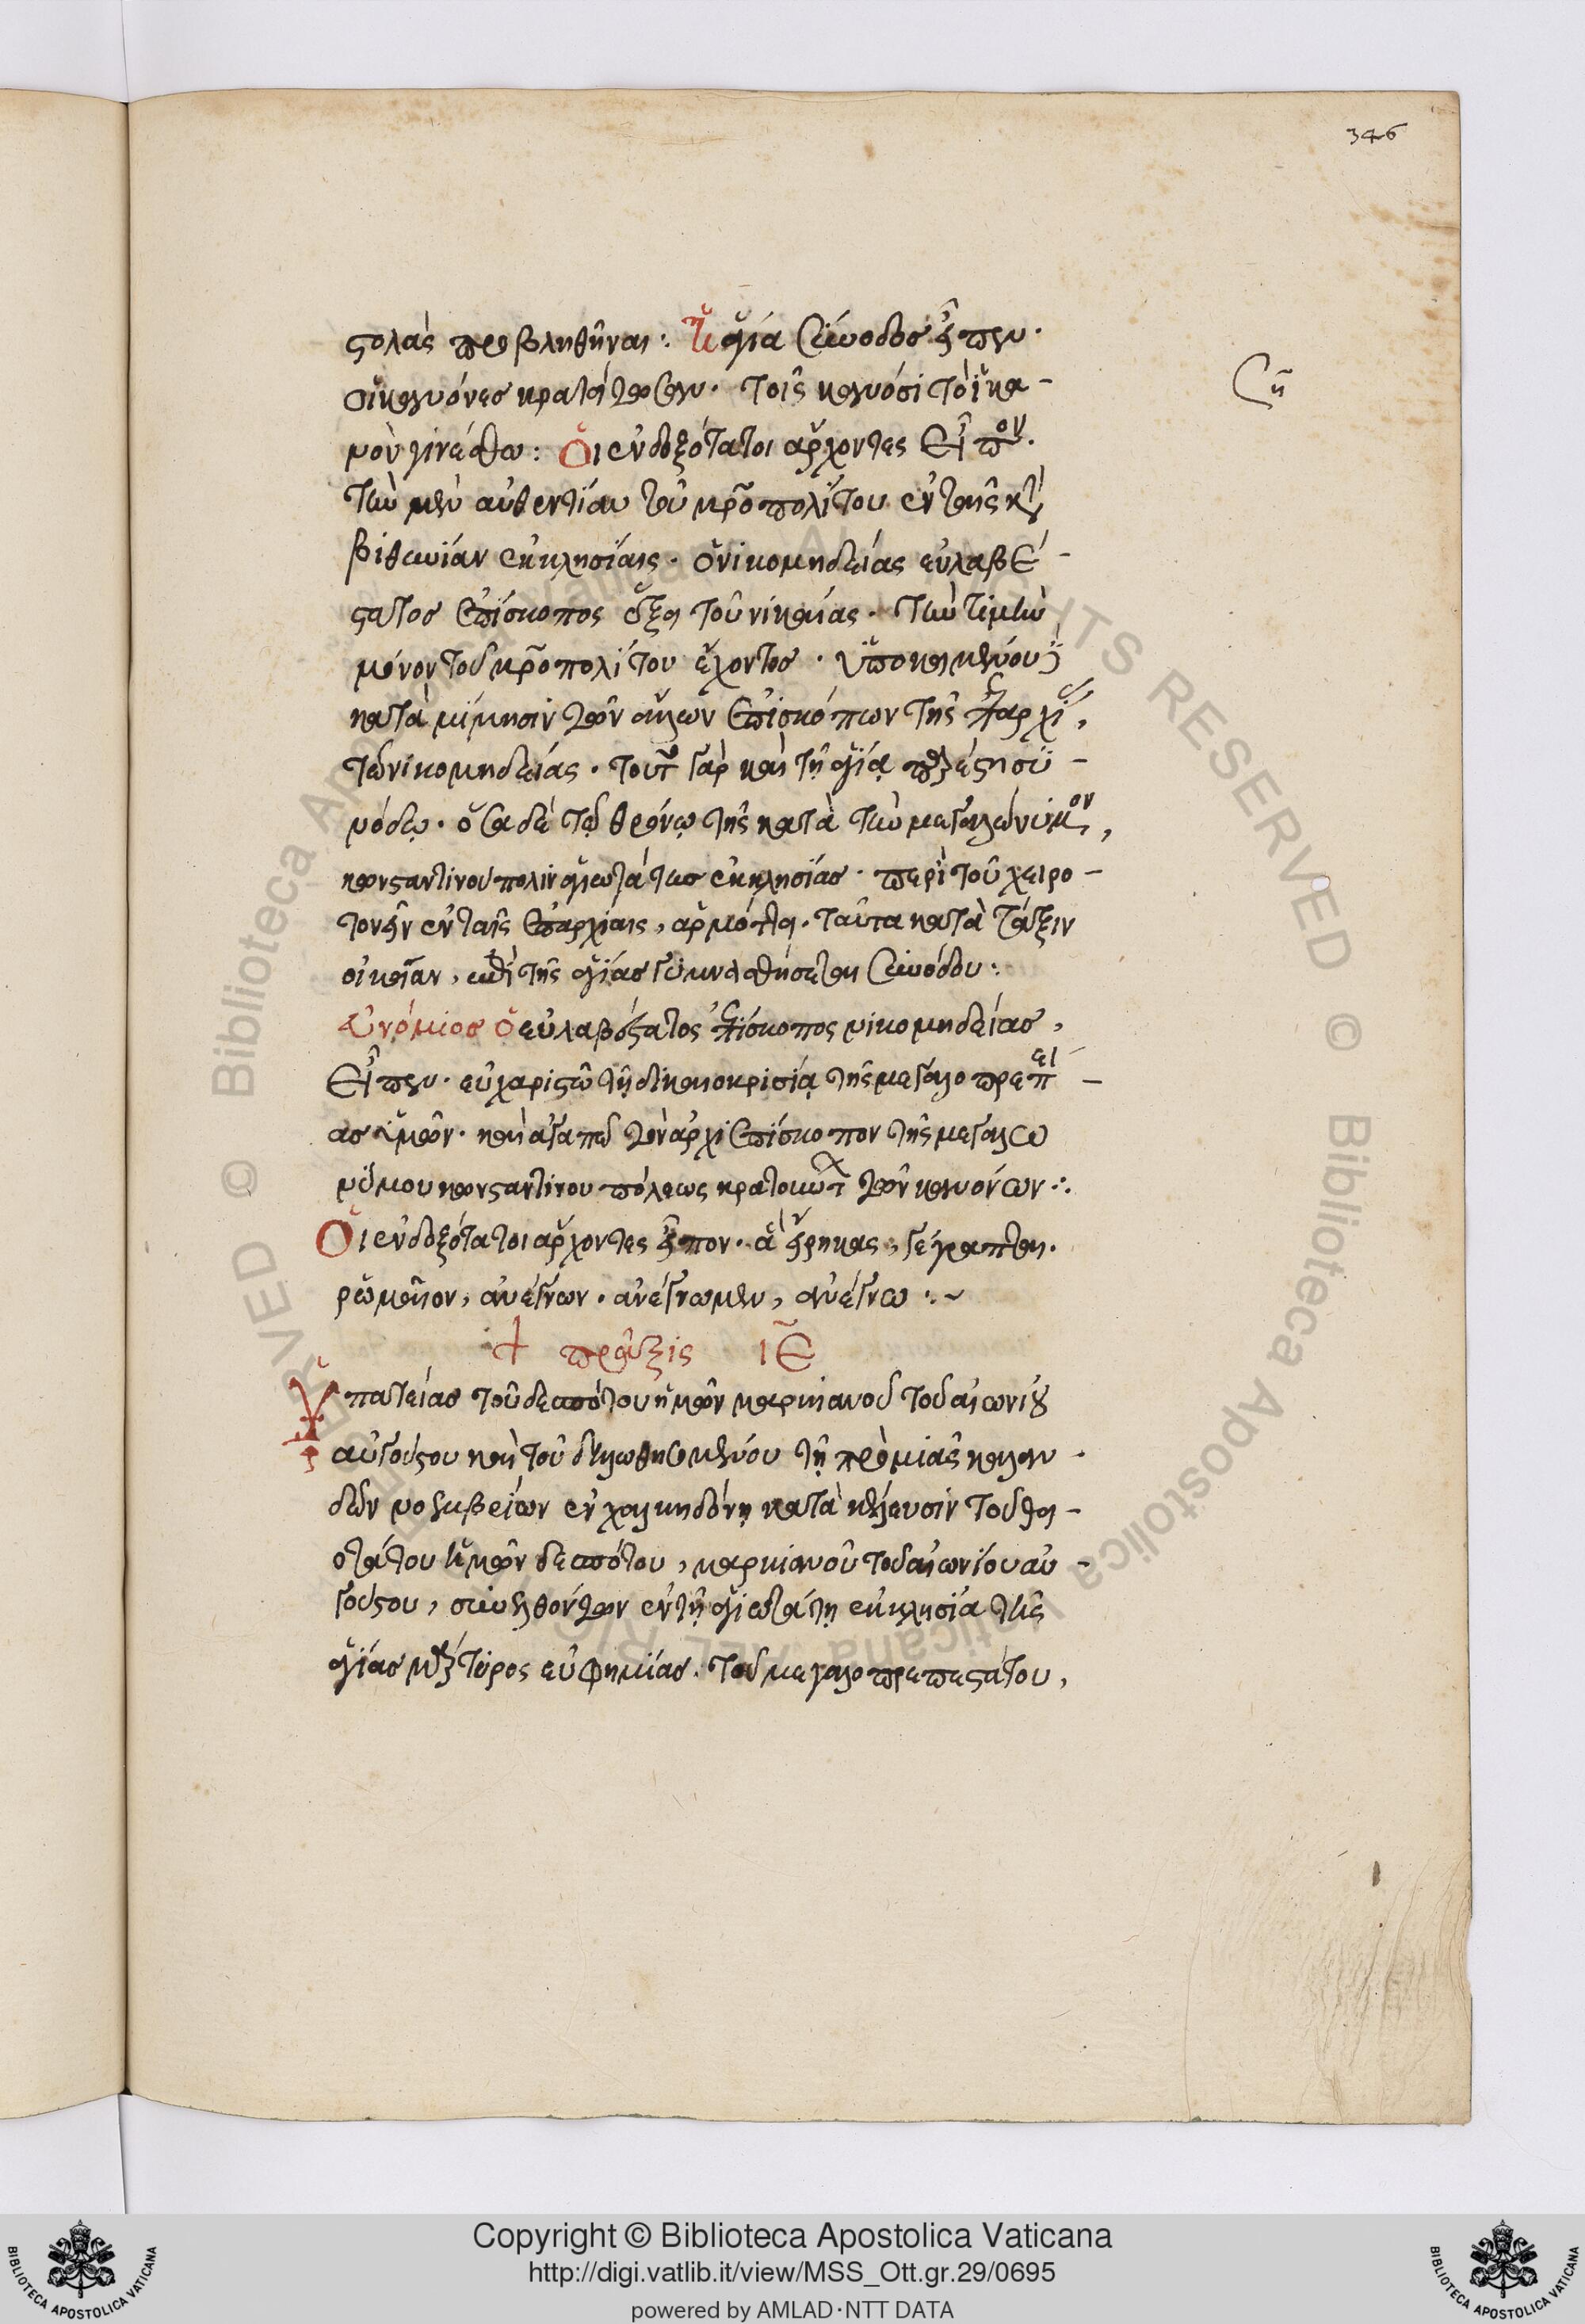 346
στολὰς προβληθῆναι: Ἡ ἁγία σύνοδος εἶπεν·
οἱ κανόνες κρατείτωσαν. τοῖς κανόσι τὸ ἱκα-
νὸν γινέσθω: Οἱ ἐνδοξότατοι ἄρχοντες εἶπον.
τὴν μὲν αὐθεντίαν τοῦ μροπολίτου ἐν ταῖς κατὰ
βιθυνίαν ἐκκλησίαις. ὁ νικομηδείας εὐλαβέ-
στατος ἐπίσκοπος ἕξει τοῦ νικαίας. τὴν τιμὴν
μόνον τοῦ μροπολίτου ἔχοντος. ὑποκειμένου
κατὰ μίμησιν τῶν ἄλλων ἐπισκόπων τῆς ἐπαρχίας,
τῷ νικομηδείας. τοῦτο γὰρ καὶ τῇ ἁγίᾳ ἤρεσε συ-
νόδῳ. ὅσα δὲ τῷ θρόνῳ τῆς κατὰ τὴν μεγαλώνυμον,
κωνσταντινούπολιν ἁγιωτάτης ἐκκλησίας. περὶ τοῦ χειρο-
τονεῖν ἐν ταῖς ἐπαρχίαις, ἁρμόττει. ταῦτα κατὰ τάξιν
οἰκείαν, ἐπὶ τῆς ἁγίας γυμνασθήσεται συνόδου:
Εὐνόμιος ὁ εὐλαβέστατος ἐπίσκοπος νικομηδείας,
εἶπεν. εὐχαριστῶ τῇ δικαιοκρισίᾳ τῆς μεγαλοπρεπεί-
ας ὑμῶν. καὶ ἀγαπῶ τὸν ἀρχιεπίσκοπον τῆς μεγαλω
νύμου κωνσταντινουπόλεως κρατούντων τῶν κανόνων:.
Οἱ ἐνδοξότατοι ἄρχοντες εἶπον. ἃ εἴρηκας, γέγραπται.
ῥωμαῖον, ἀνέγνων. ἀνέγνωμεν, ἀνέγνω:~
+ πρᾶξις ιε
Ὑπατείας τοῦ δεσπότου ἡμῶν μαρκιανοῦ τοῦ αἰωνίου
αὐγούστου καὶ τοῦ δηλωθησομένου τῇ πρὸ μιᾶς καλαν-
δῶν νοεμβρίων ἐν χαλκηδόνῃ κατὰ κέλευσιν τοῦ θει-
οτάτου ἡμῶν δεσπότου, μαρκιανοῦ τοῦ αἰωνίου αὐ-
γούστου, συνελθόντων ἐν τῇ ἁγιωτάτῃ ἐκκλησίᾳ τῆς
ἁγίας μάρτυρος εὐφημίας. τοῦ μεγαλοπρεπεστάτου,
Copyright © Biblioteca Apostolica Vaticana
http://digi.vatlib.it/view/MSS_Ott.gr.29/0695
powered by AMLAD·NTT DATA